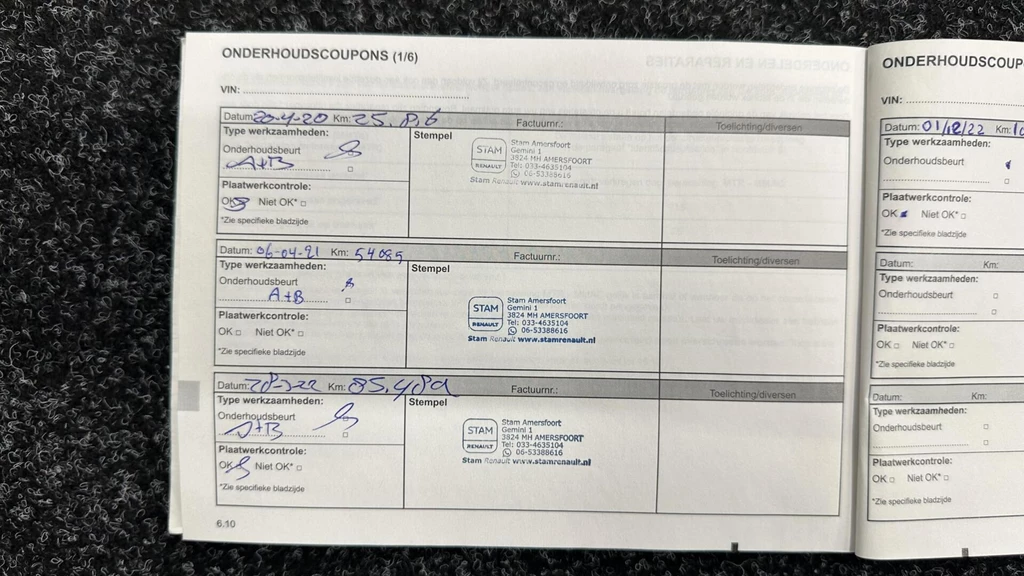 ONDERHOUDSCOUPONS (1/6)
VIN:
Datum: 20-4-20 Km: Factuurnr.: Toelichting/diversen
Type werkzaamheden: Stempel
Onderhoudsbeurt
A+B
Plaatwerkcontrole:
OK Niet OK*
*Zie specifieke bladzijde
STAM
RENAULT
Stam Amersfoort
Gemini 1
3824 MH AMERSFOORT
Tel: 033-4635104
06-53388616
Stam Renault www.stamrenault.nl
Datum: 06-04-21 Km: 54085 Factuurnr.: Toelichting/diversen
Type werkzaamheden: Stempel
Onderhoudsbeurt
A+B
Plaatwerkcontrole:
OK Niet OK*
*Zie specifieke bladzijde
STAM
RENAULT
Stam Amersfoort
Gemini 1
3824 MH AMERSFOORT
Tel: 033-4635104
06-53388616
Stam Renault www.stamrenault.nl
Datum: Km: Factuurnr.: Toelichting/diversen
Type werkzaamheden: Stempel
Onderhoudsbeurt
A+B
Plaatwerkcontrole:
OK Niet OK*
*Zie specifieke bladzijde
STAM
RENAULT
Stam Amersfoort
Gemini 1
3824 MH AMERSFOORT
Tel: 033-4635104
06-53388616
Stam Renault www.stamrenault.nl
6.10
ONDERHOUDSCOUP
VIN:
Datum: 01/12/22 Km:
Type werkzaamheden:
Onderhoudsbeurt
Plaatwerkcontrole:
OK Niet OK*
*Zie specifieke bladzijde
Datum: Km:
Type werkzaamheden:
Onderhoudsbeurt
Plaatwerkcontrole:
OK Niet OK*
*Zie specifieke bladzijde
Datum: Km:
Type werkzaamheden:
Onderhoudsbeurt
Plaatwerkcontrole:
OK Niet OK*
*Zie specifieke bladzijde